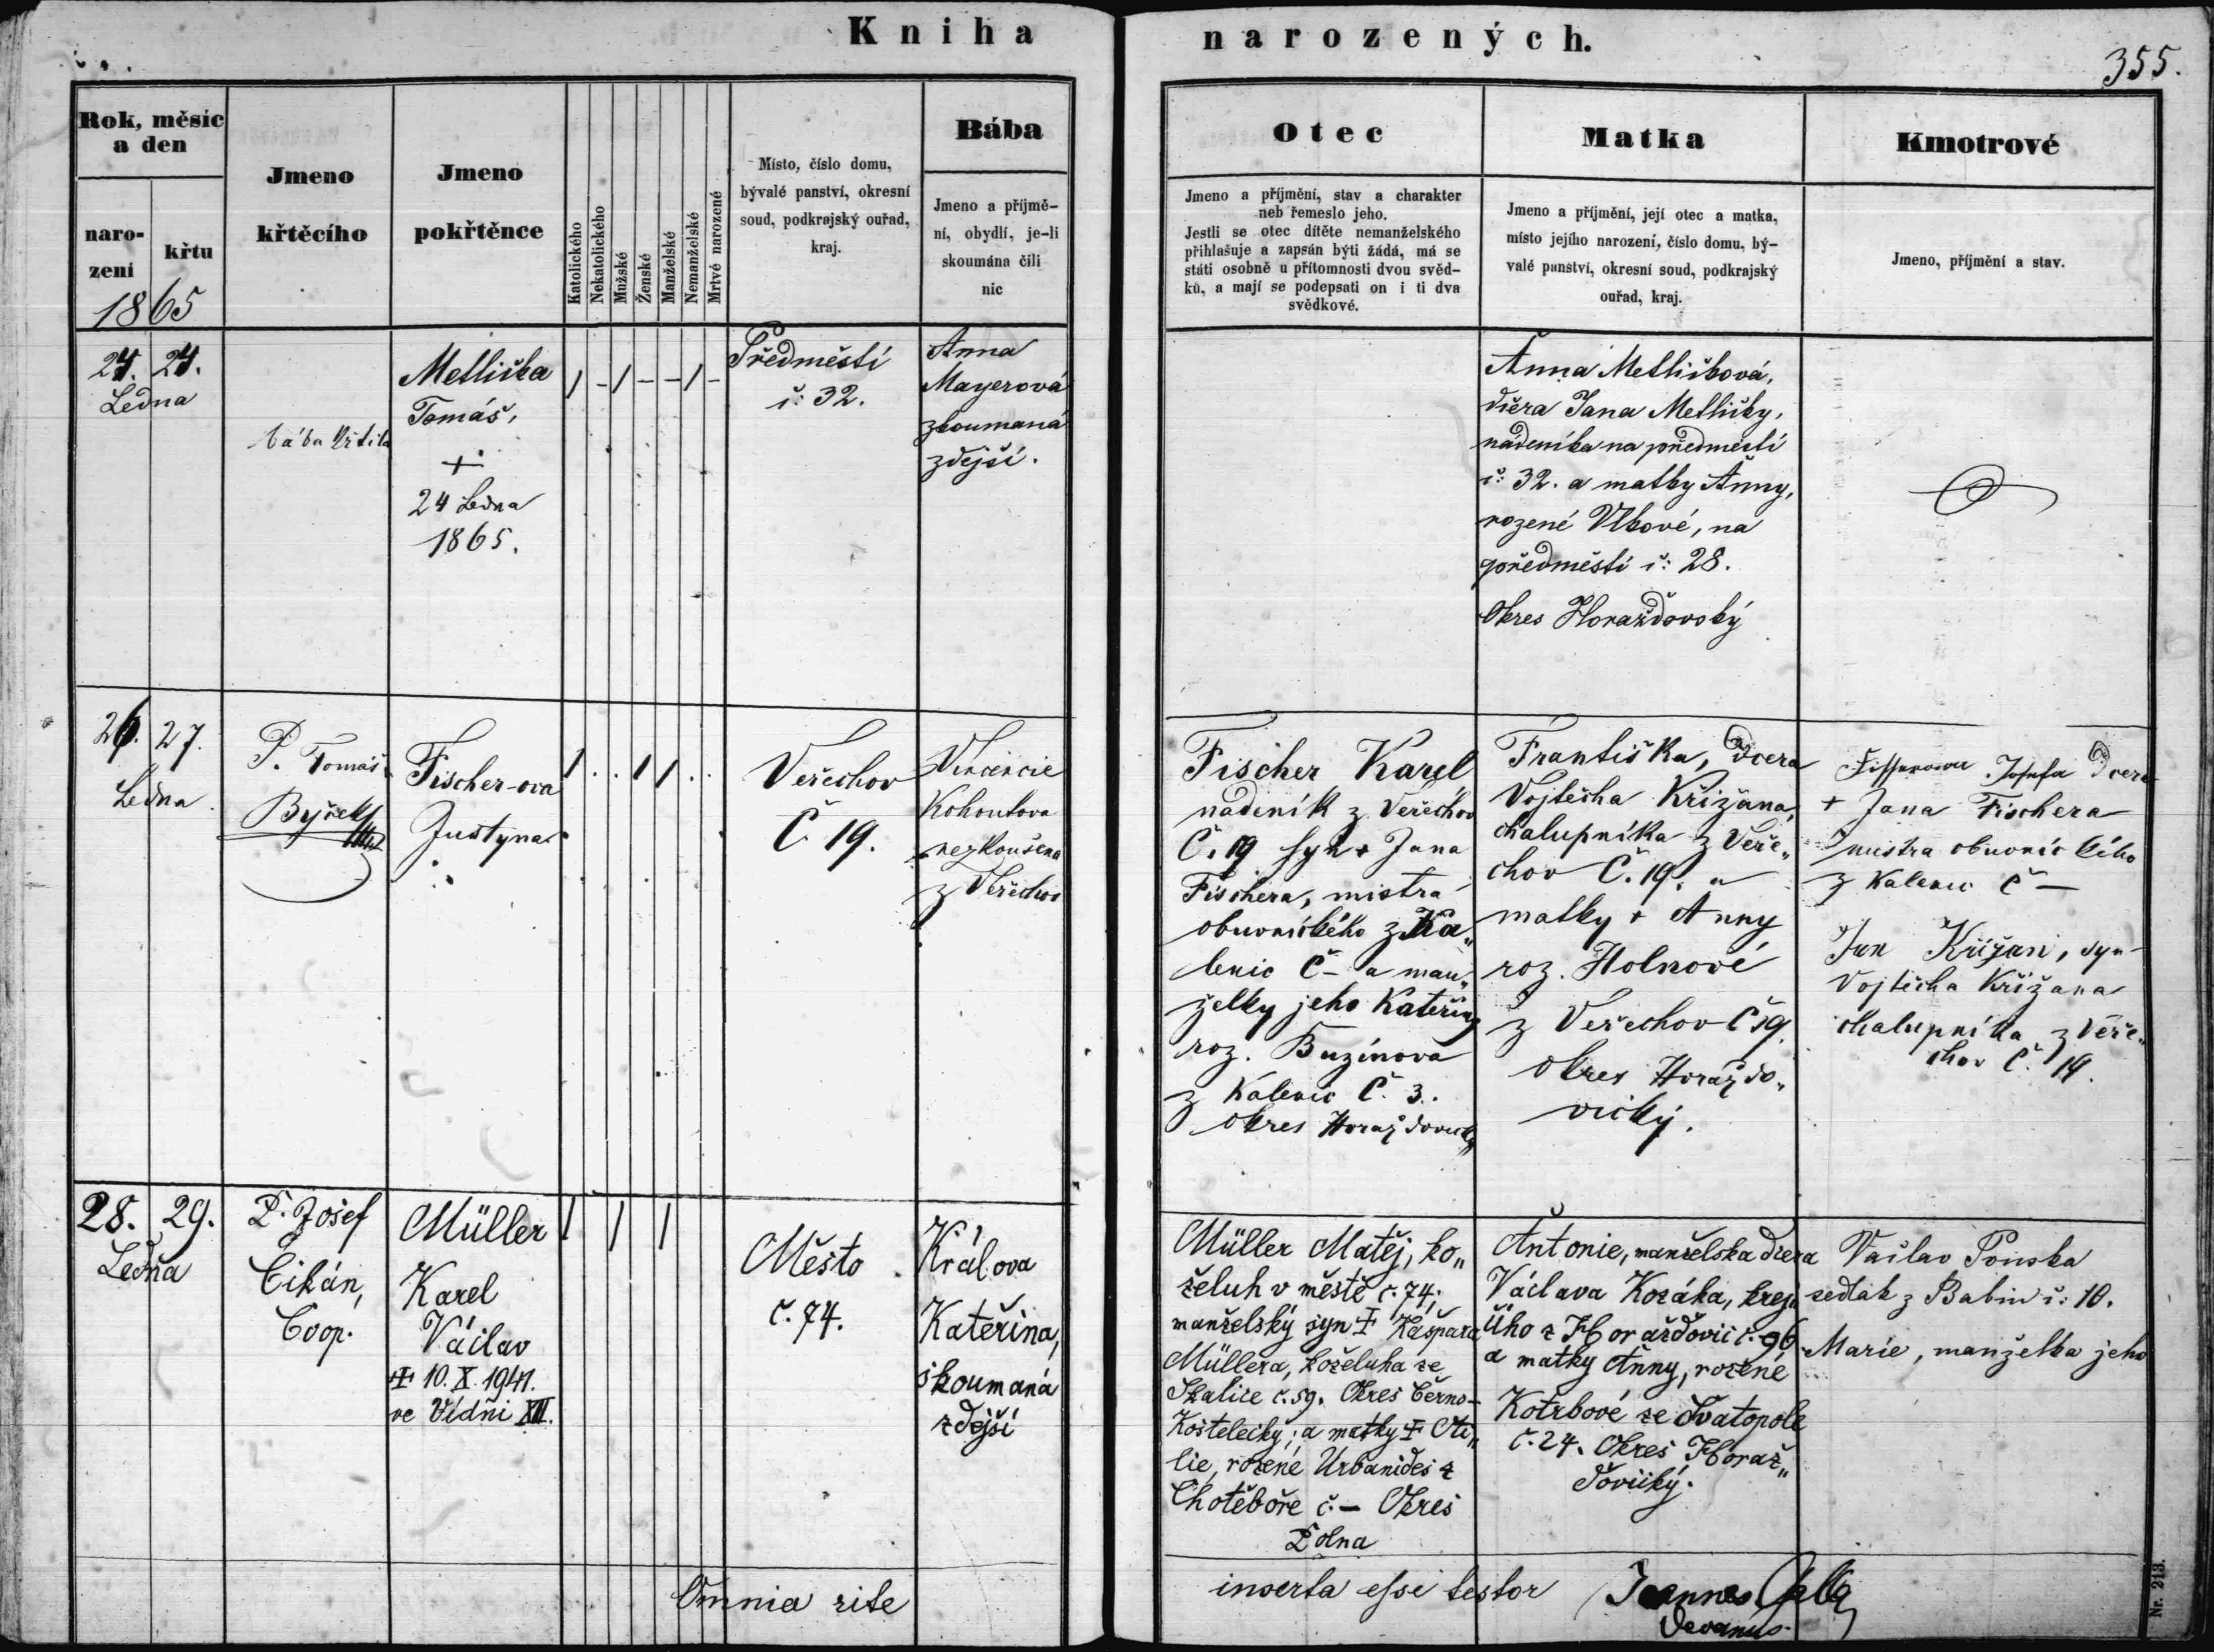 Kniha narozených.
355.
Rok, měsíc
a den
naro-
zení
křtu
1865
Jmeno
křtěcího
Jmeno
pokřtěnce
Katolického
Nekatolického
Mužské
Ženské
Manželské
Nemanželské
Mrtvé narozené
Místo, číslo domu,
bývalé panství, okresní
soud, podkrajský ouřad,
kraj.
Bába
Jmeno a příjmě-
ní, obydlí, je-li
skoumána čili
nic
Otec
Jmeno a příjmění, stav a charakter
neb řemeslo jeho.
Jestli se otec dítěte nemanželského
přihlašuje a zapsán býti žádá, má se
státi osobně u přítomnosti dvou svěd-
ků, a mají se podepsati on i ti dva
svědkové.
Matka
Jmeno a příjmění, její otec a matka,
místo jejího narození, číslo domu, bý-
valé panství, okresní soud, podkrajský
ouřad, kraj.
Kmotrové
Jmeno, příjmění a stav.
24. 24.
Ledna
bába křtila
Metlička
Tomáš,
+
24 Ledna
1865.
/ - / - - / -
Předměstí
č: 32.
Anna
Mayerová
zkoumaná
zdejší.
Anna Metličková,
dcera Jana Metličky,
nádeníka na předměstí
č: 32. a matky Anny,
rozené Vlkové, na
předměstí č: 28.
Okres Horažďovský
26. 27.
Ledna
P. Tomáš
Fischer-ova
Justyna
/ . . / / . .
Veřechov
Č 19.
Vincencie
Kohoutova
nezkoušena
z Veřechov
Fischer Karel
nádeník z Veřechov
Č. 19 syn + Jana
Fischera, mistra
obuvnického z Ka„
lenic Č - a man„
želky jeho Kateřiny
roz. Buzínova
z Kalenic Č. 3.
okres Horažďovický
Františka, dcera
Vojtěcha Křižana,
chalupníka z Veře„
chov Č. 19. a
matky + Anny
roz. Holnové
z Veřechov Č 19.
okres Horaždo„
vický.
Josefa dcera
+ Jana Fischera
mistra obuvnického
z Kalenic Č —
Jan Křižan, syn
Vojtěcha Křižana
chalupníka z Veře„
chov Č. 19.
28. 29.
Ledna
P. Josef
Cikán,
Coop.
Müller
Karel
Václav
+ 10. X. 1941.
ve Vídni XIII.
/ / /
Město
č. 74.
Králova
Kateřina,
skoumaná
zdejší
Müller Matěj, ko„
želuh v městě č. 74.
manželský syn + Kašpara
Müllera, koželuha ze
Skalice č. 59. Okres Černo-
Kostelecký; a matky + Oti„
lie, rozené Urbanides z
Chotěboře č. — Okres
Polna
Antonie, manželska dcera
Václava Kozáka, krej„
čího z Horažďovic č. 96
a matky Anny, rozené
Kotrbové ze Svatopole
č. 24. Okres Horaž„
ďovický.
Václav Ponska
sedlák z Babin č: 10.
Marie, manželka jeho
Omnia rite
inserta esse testor
Joannes
Decanus.
Nr. 213.